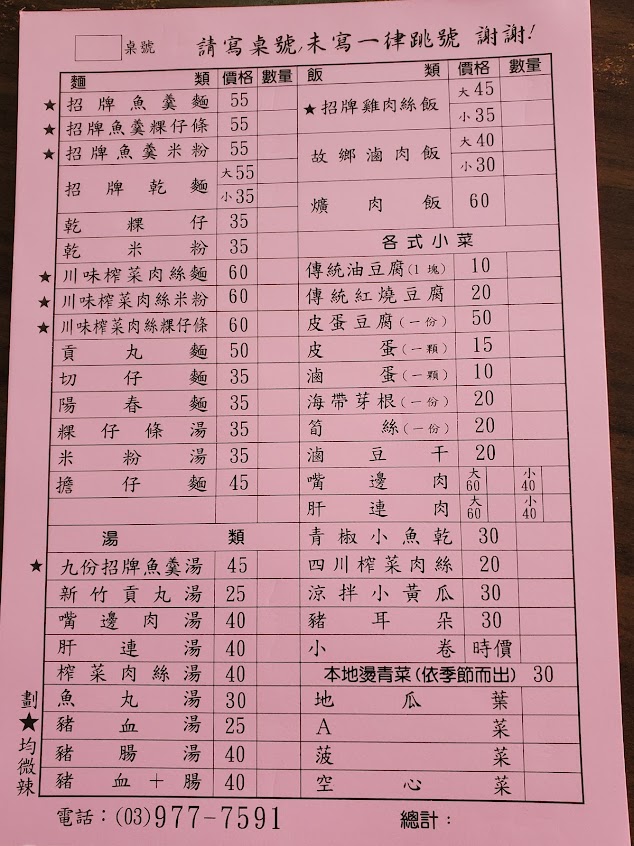 桌號 請寫桌號,未寫一律跳號 謝謝!
麵類 價格 數量
★ 招牌魚羹麵 55
★ 招牌魚羹粿仔條 55
★ 招牌魚羹米粉 55
招牌乾麵 大55 小35
乾粿仔 35
乾米粉 35
★ 川味榨菜肉絲麵 60
★ 川味榨菜肉絲米粉 60
★ 川味榨菜肉絲粿仔條 60
貢丸麵 50
切仔麵 35
陽春麵 35
粿仔條湯 35
米粉湯 35
擔仔麵 45
湯類
★ 九份招牌魚羹湯 45
新竹貢丸湯 25
嘴邊肉湯 40
肝連湯 40
榨菜肉絲湯 40
魚丸湯 30
豬血湯 25
豬腸湯 40
豬血+腸 40
劃★均微辣
飯類 價格 數量
★招牌雞肉絲飯 大45 小35
故鄉滷肉飯 大40 小30
爌肉飯 60
各式小菜
傳統油豆腐(1塊) 10
傳統紅燒豆腐 20
皮蛋豆腐(一份) 50
皮蛋(一顆) 15
滷蛋(一顆) 10
海帶芽根(一份) 20
筍絲(一份) 20
滷豆干 20
嘴邊肉 大60 小40
肝連肉 大60 小40
青椒小魚乾 30
四川榨菜肉絲 20
涼拌小黃瓜 30
豬耳朵 30
小卷 時價
本地燙青菜(依季節而出) 30
地瓜葉
A菜
菠菜
空心菜
電話:(03)977-7591 總計: